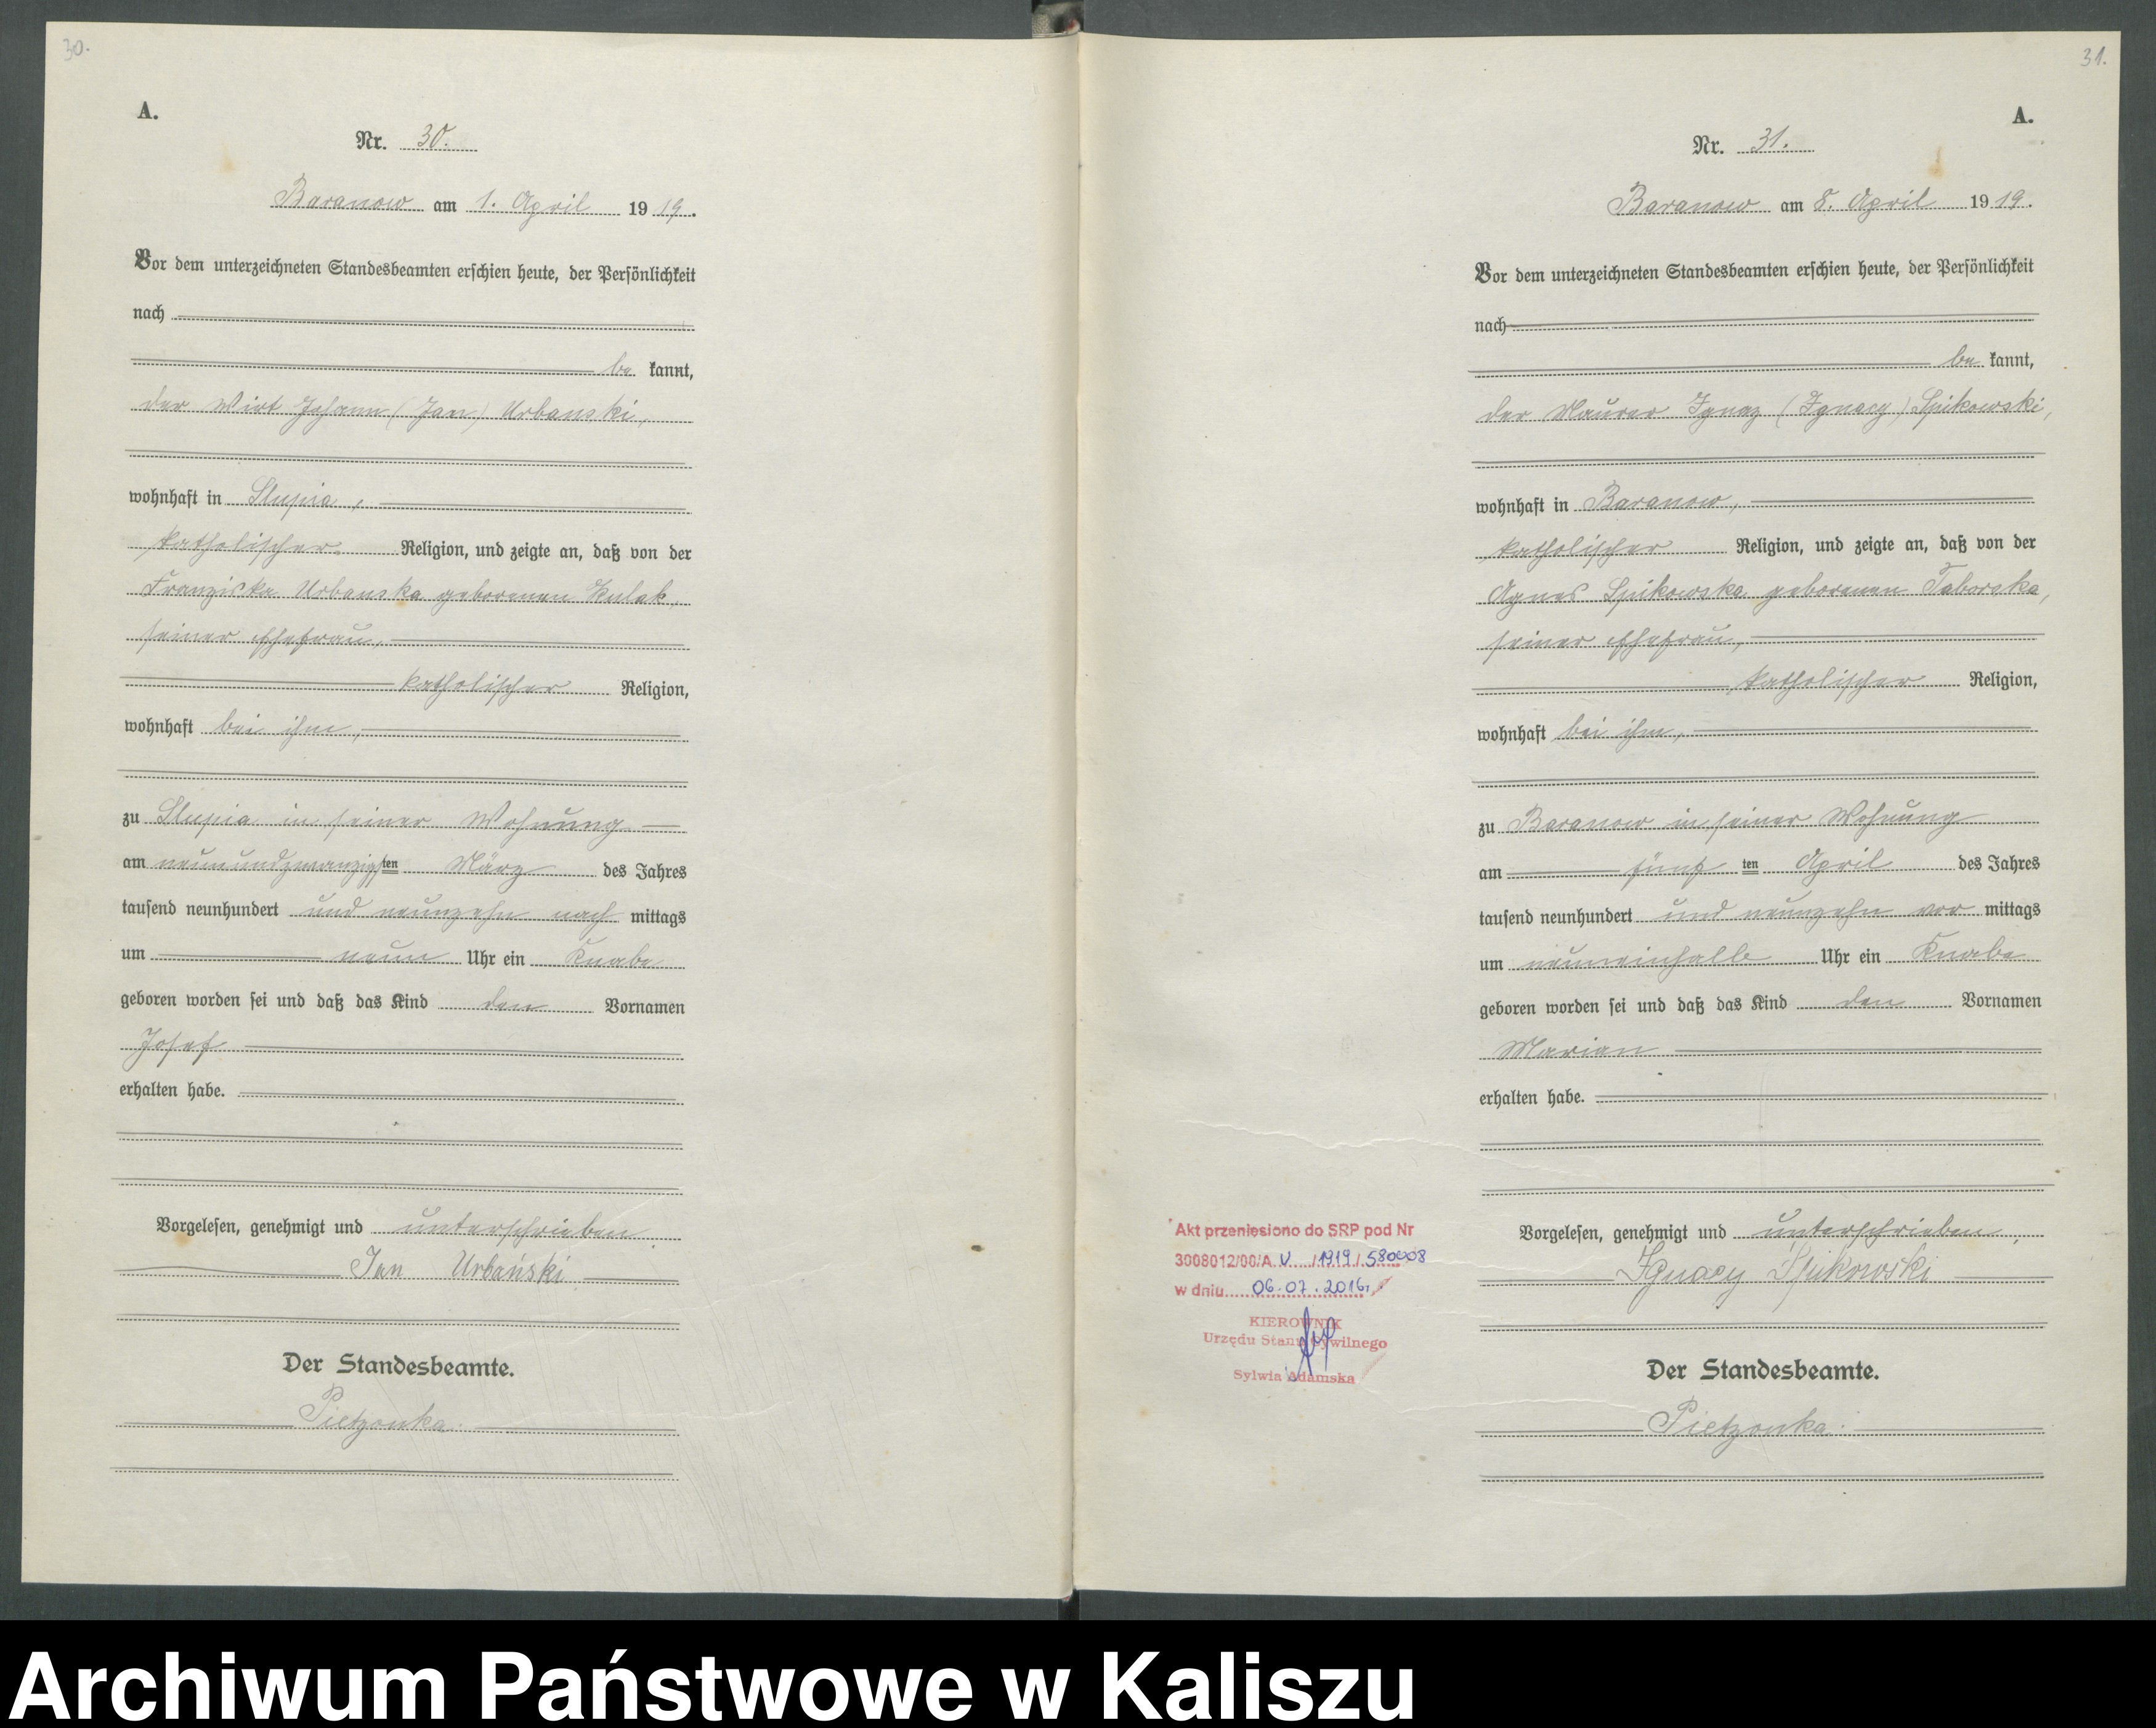 30.
A.
Nr. 30.
Baranow am 1. April 1919.
Vor dem unterzeichneten Standesbeamten erschien heute, der Persönlichkeit
nach
be kannt,
der Wirt Johann (Jan) Urbanski,
wohnhaft in Slupia,
katholischer Religion, und zeigte an, daß von der
Franziska Urbanska geborenen Kulak,
seiner Ehefrau,
katholischer Religion,
wohnhaft bei ihm,
zu Slupia in seiner Wohnung
am neunundzwanzigsten März des Jahres
tausend neunhundert und neunzehn nach mittags
um neun Uhr ein Knabe
geboren worden sei und daß das Kind den Vornamen
Josef
erhalten habe.
Vorgelesen, genehmigt und unterschrieben
Jan Urbański
Der Standesbeamte.
Pietzonka.
31.
A.
Nr. 31.
Baranow am 8. April 1919.
Vor dem unterzeichneten Standesbeamten erschien heute, der Persönlichkeit
nach
be kannt,
der Maurer Ignaz (Ignacy) Spikowski,
wohnhaft in Baranow,
katholischer Religion, und zeigte an, daß von der
Agnes Spikowska geborenen Taborska,
seiner Ehefrau,
katholischer Religion,
wohnhaft bei ihm,
zu Baranow in seiner Wohnung
am fünf ten April des Jahres
tausend neunhundert und neunzehn vor mittags
um neuneinhalb Uhr ein Knabe
geboren worden sei und daß das Kind den Vornamen
Marian
erhalten habe.
Vorgelesen, genehmigt und unterschrieben,
Ignacy Spikowski
Der Standesbeamte.
Pietzonka.
Akt przeniesiono do SRP pod Nr
3008012/00/A V /1919/
w dniu 06.07.2016r
KIEROWNIK
Urzędu Stanu Cywilnego
Sylwia Adamska
Archiwum Państwowe w Kaliszu